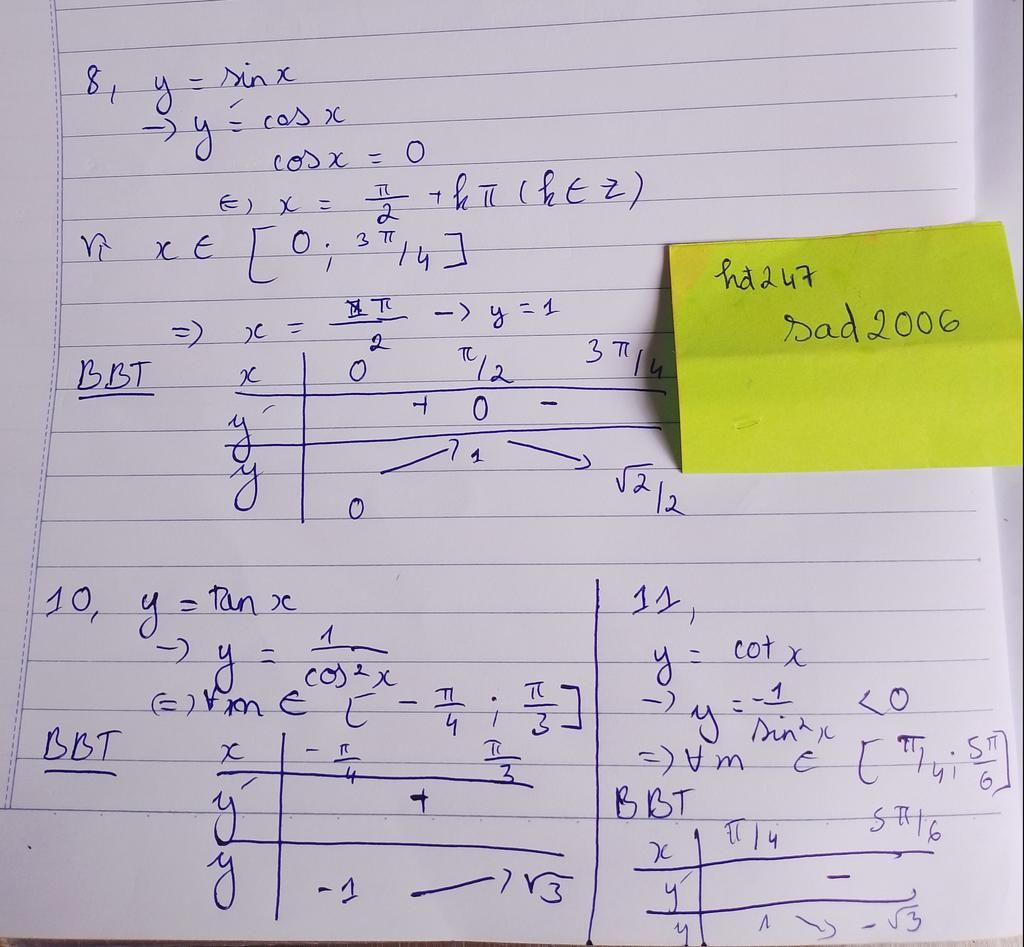 8, y = sin x
→ y' = cos x
cos x = 0
⇔ x = π/2 + kπ (k ∈ Z)
Vì x ∈ [0; 3π/4]
⇒ x = π/2 → y = 1
BBT
x 0 π/2 3π/4
y' + 0 -
y 0 ↗ 1 ↘ √2/2
hd247
sad2006
10, y = tan x
→ y = 1/cos²x
⇔ ∀m ∈ [-π/4; π/3]
BBT
x -π/4 π/3
y' +
y -1 → √3
11,
y = cot x
→ y = -1/sin²x < 0
⇒ ∀m ∈ [π/4; 5π/6]
BBT
x π/4 5π/6
y' -
y 1 ↘ -√3